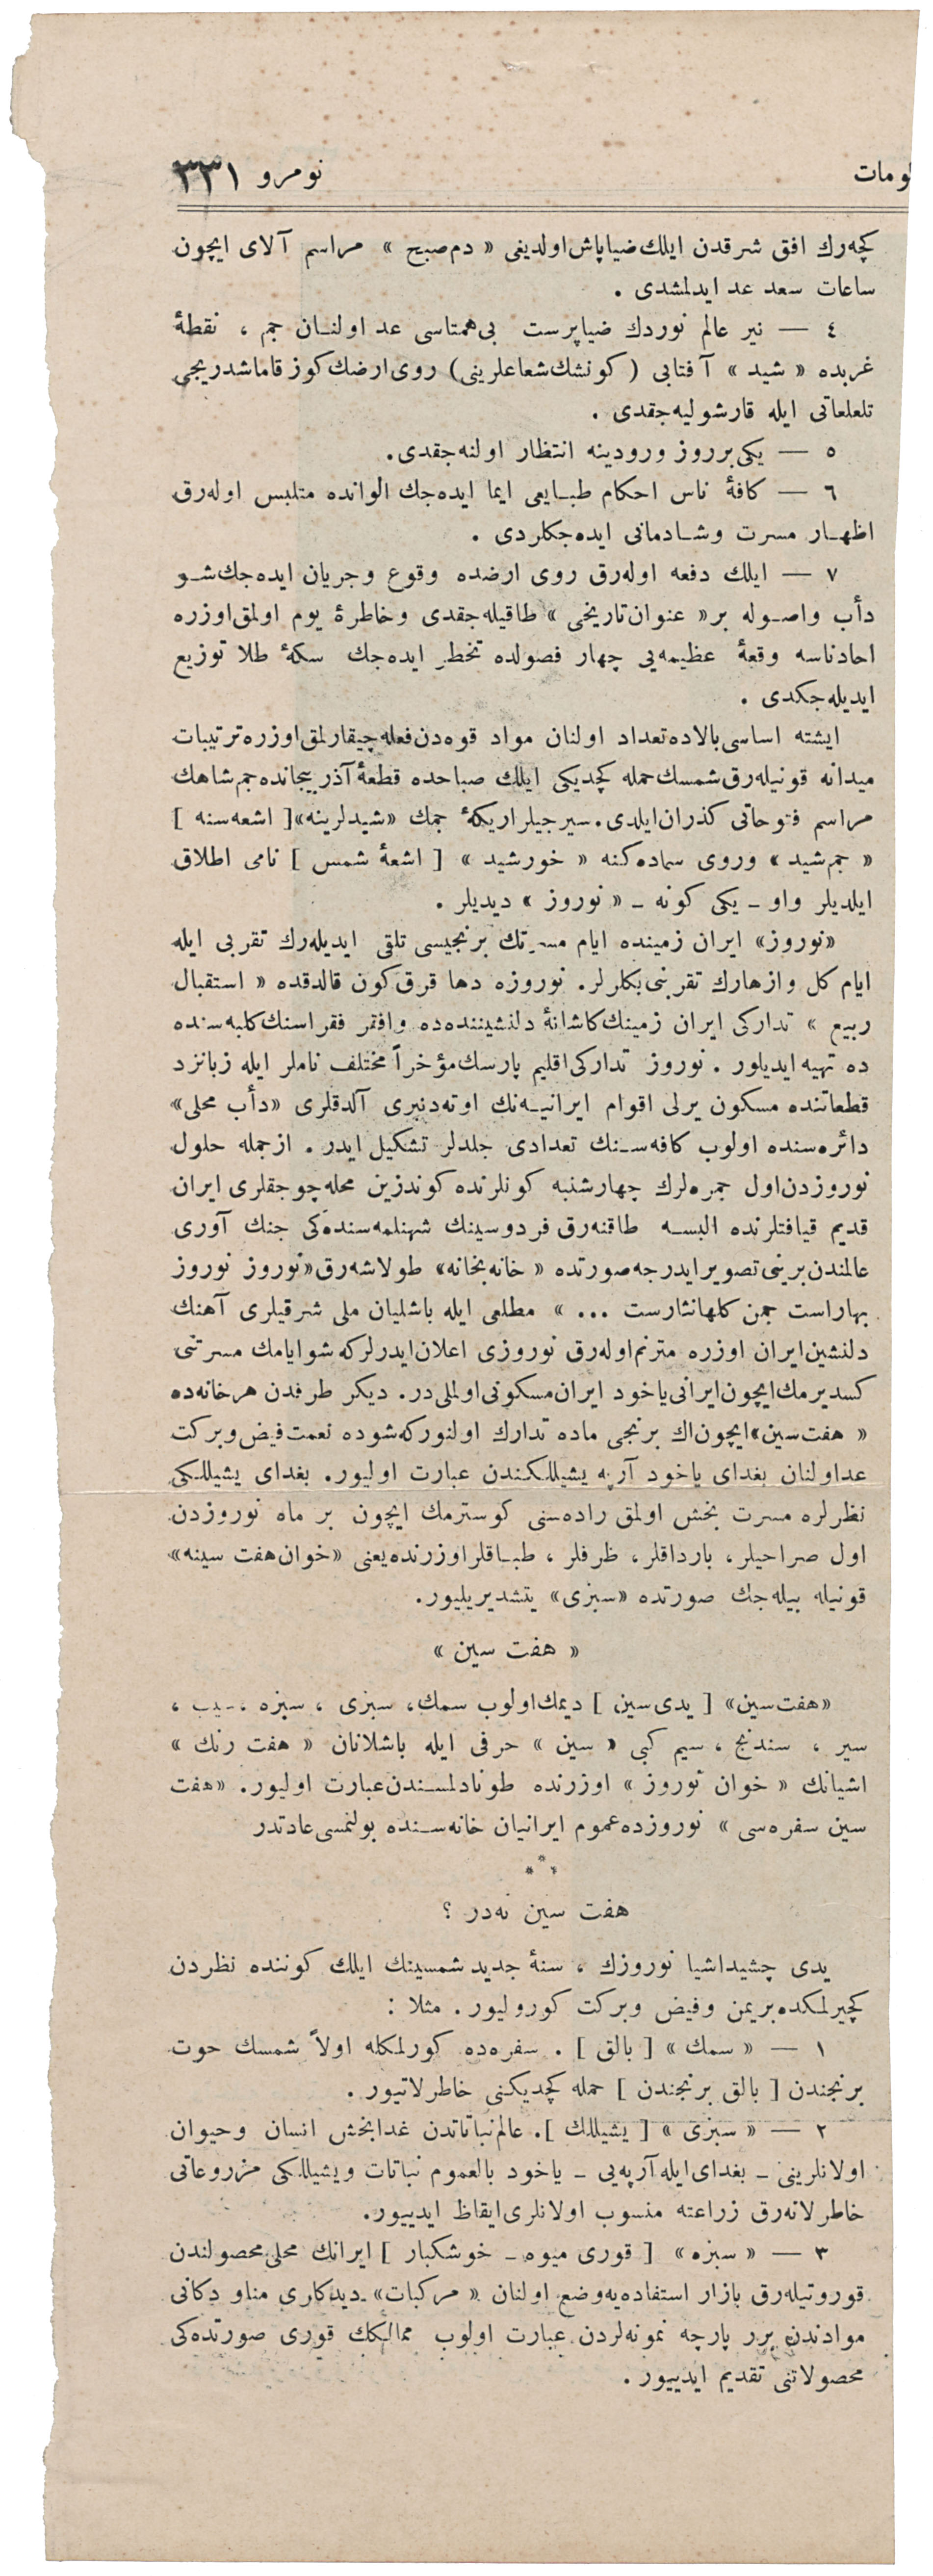 لومات
نومرو ٣٣١
كچه‌رك افق شرقدن ايلك ضياپاش اولديغی « دم صبح » مراسم آلای ايچون
ساعات سعد عد ايدلمشدی .
٤ — نير عالم نوردك ضياپرست بی همتاسی عد اولنان جم ، نقطهٔ
غربده « شيد » آفتابی ( كونشك شعاعلرينی ) روی ارضك كوز قاماشديريجی
تلعلعاتی ايله قارشوليه‌جقدی .
٥ — يكی بر روز ورودينه انتظار اولنه‌جقدی .
٦ — كافهٔ ناس احكام طبايعی ايما ايده‌جك الوانده متلبس اوله‌رق
اظهار مسرت وشادمانی ايده‌جكلردی .
٧ — ايلك دفعه اوله‌رق روی ارضده وقوع وجريان ايده‌جك شو
دأب واصوله بر « عنوان تاريخی » طاقيله‌جقدی وخاطرهٔ يوم اولمق اوزره
احادناسه وقعهٔ عظيمه‌يی چهار فصولده تخطر ايده‌جك سكهٔ طلا توزيع
ايديله‌جكدی .
ايشته اساسی بالاده تعداد اولنان مواد قوه‌دن فعله چيقارلمق اوزره ترتيبات
ميدانه قونيله‌رق شمسك حمله كچديكی ايلك صباحده قطعهٔ آذربيجانده جم شاهك
مراسم فتوحاتی كذران ايلدی . سيرجيلر اريكهٔ جمك «شيدلرينه» [ اشعه‌سنه ]
« جم شيد » وروی سماده‌كنه « خورشيد » [ اشعهٔ شمس ] نامی اطلاق
ايلديلر واو ـ يكی كونه ـ « نوروز » ديديلر .
«نوروز» ايران زمينده ايام مسرتك برنجيسی تلقی ايديله‌رك تقربی ايله
ايام كل وازهارك تقربنی بكلرلر . نوروزه دها قرق كون قالدقده « استقبال
ربيع » تداركی ايران زمينك كاشانهٔ دلنشيننده‌ده وافقر فقراسنك كلبه‌سنده
ده تهيه ايديلور . نوروز تداركی اقليم پارسك مؤخراً مختلف ناملر ايله زبانزد
قطعاتنده مسكون يرلی اقوام ايرانيه‌نك اوته‌دنبری آلدقلری «دأب محلی»
دائره‌سنده اولوب كافه‌سنك تعدادی جلدلر تشكيل ايدر . ازجمله حلول
نوروزدن اول جمره‌لرك چهارشنبه كونلرنده كوندزين محله چوجقلری ايران
قديم قيافتلرنده البسه طاقنه‌رق فردوسينك شهنامه‌سنده‌كی جنك آوری
عالمندن برينی تصوير ايدرجه صورتده « خانه بخانه » طولاشه‌رق «نوروز نوروز
بهاراست چمن كلها نثارست ... » مطلعی ايله باشليان ملی شرقيلری آهنك
دلنشين ايران اوزره مترنم اوله‌رق نوروزی اعلان ايدرلركه شو ايامك مسرتنی
كسديرمك ايچون ايرانی ياخود ايران مسكونی اولملی‌در . ديكر طرفدن هر خانه‌ده
« هفت سين » ايچون اك برنجی ماده تدارك اولنوركه شوده نعمت فيض وبركت
عد اولنان بغدای ياخود آرپه يشيللكندن عبارت اوليور . بغدای يشيللكی
نظرلره مسرت بخش اولمق راده‌سنی كوسترمك ايچون بر ماه نوروزدن
اول صراحيلر ، بارداقلر ، ظرفلر ، طباقلر اوزرنده يعنی «خوان هفت سينه»
قونيله بيله‌جك صورتده «سبزی» يتشديريليور .
« هفت سين »
«هفت سين» [ يدی سين ] ديمك اولوب سمك ، سبزی ، سبزه ، سيب ،
سير ، سندنج ، سيم كبی « سين » حرفی ايله باشلانان « هفت رنك »
اشيانك « خوان نوروز » اوزرنده طونادلمسندن عبارت اوليور . «هفت
سين سفره‌سی » نوروزده عموم ايرانيان خانه‌سنده بولنمسی عادتدر
***
هفت سين نه‌در ؟
يدی چشيد اشيا نوروزك ، سنهٔ جديد شمسينك ايلك كوننده نظردن
كچيرلمكده بر يمن وفيض وبركت كوروليور . مثلا :
١ — « سمك » [ بالق ] . سفره‌ده كورلمكله اولاً شمسك حوت
برنجندن [ بالق برنجندن ] حمله كچديكنی خاطرلاتيور .
٢ — « سبزی » [ يشيللك ] . عالم نباتاتدن غدابخش انسان وحيوان
اولانلرينی ـ بغدای ايله آرپه‌يی ـ ياخود بالعموم نباتات ويشيللكی مزروعاتی
خاطرلانه‌رق زراعته منسوب اولانلری ايقاظ ايدييور .
٣ — « سبزه » [ قوری ميوه ـ خوشكبار ] ايرانك محلی محصولندن
قوروتيله‌رق بازار استفاده‌يه وضع اولنان « مركبات » ديدكلری مناو دكانی
موادندن برر پارچه نمونه‌لردن عبارت اولوب ممالكك قوری صورتده‌كی
محصولاتنی تقديم ايدييور .